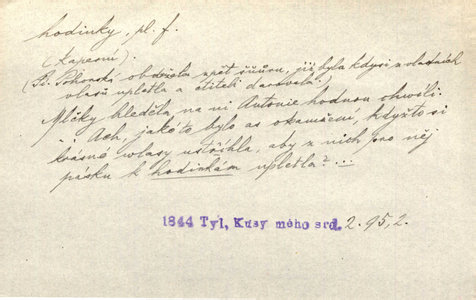 hodinky, pl. f.
(kapesní).
(Pí. Pohorská obdržela zpět šňůru, již byla kdysi z vlastních
vlasů upletla a ctiteli darovala.)
Mlčky hleděla na ni Antonie hodnou chvíli.
.. Ach, jakéto bylo as okamžení, kdyžto si
krásné vlasy ustřihla, aby z nich pro něj
pásku k hodinkám upletla? ...
1844 Tyl, Kusy mého srd. 2. 95, 2.